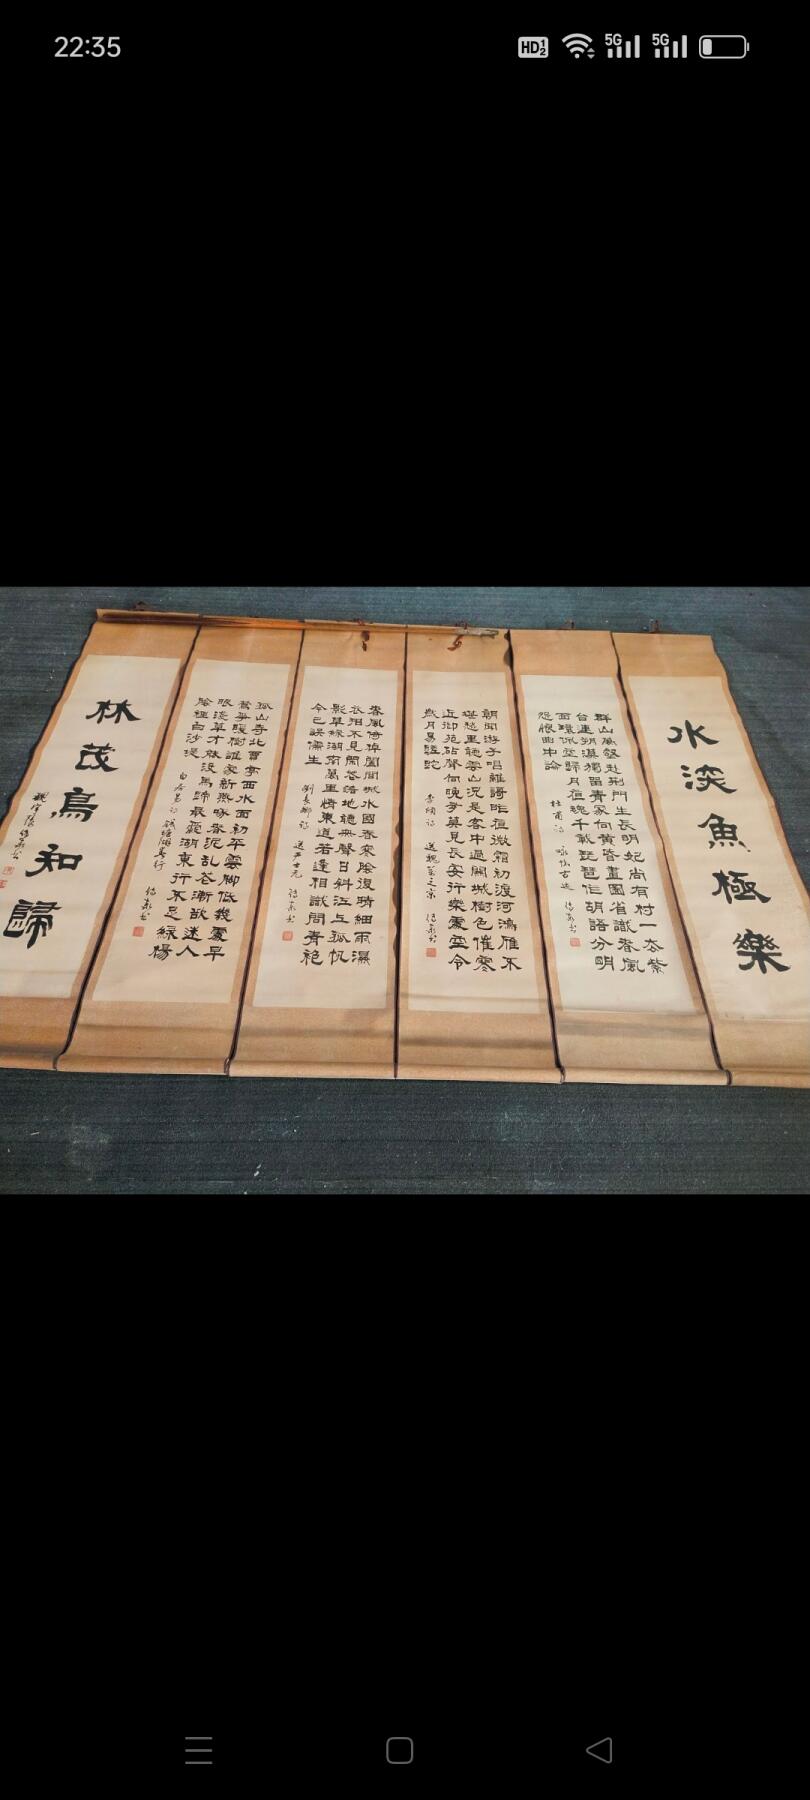 22:35
HD 1 2
5G
5G
水淡魚極樂
群山萬壑赴荆門生長明妃尚有村一去紫
台連朔漠獨留青冢向黃昏畫圖省識春風
面環佩空歸月夜魂千載琵琶作胡語分明
怨恨曲中論
杜甫詩 咏懷古迹
朝聞游子唱離歌昨夜微霜初渡河鴻雁不
堪愁里聽雲山况是客中過關城樹色催寒
近御苑砧聲向晚多莫見長安行樂處空令
歲月易蹉跎
李頎詩 送魏萬之京
春風倚棹闔閭城水國春寒陰復晴細雨濕
衣看不見閑花落地聽無聲日斜江上孤帆
影草綠湖南萬里情東道若逢相識問青袍
今已誤儒生
劉長卿詩 送严士元
孤山寺北賈亭西水面初平雲脚低幾處早
鶯爭暖樹誰家新燕啄春泥乱花漸欲迷人
眼淺草才能没馬蹄最愛湖東行不足綠楊
陰裡白沙堤
白居易詩 錢塘湖春行
林茂鳥知歸